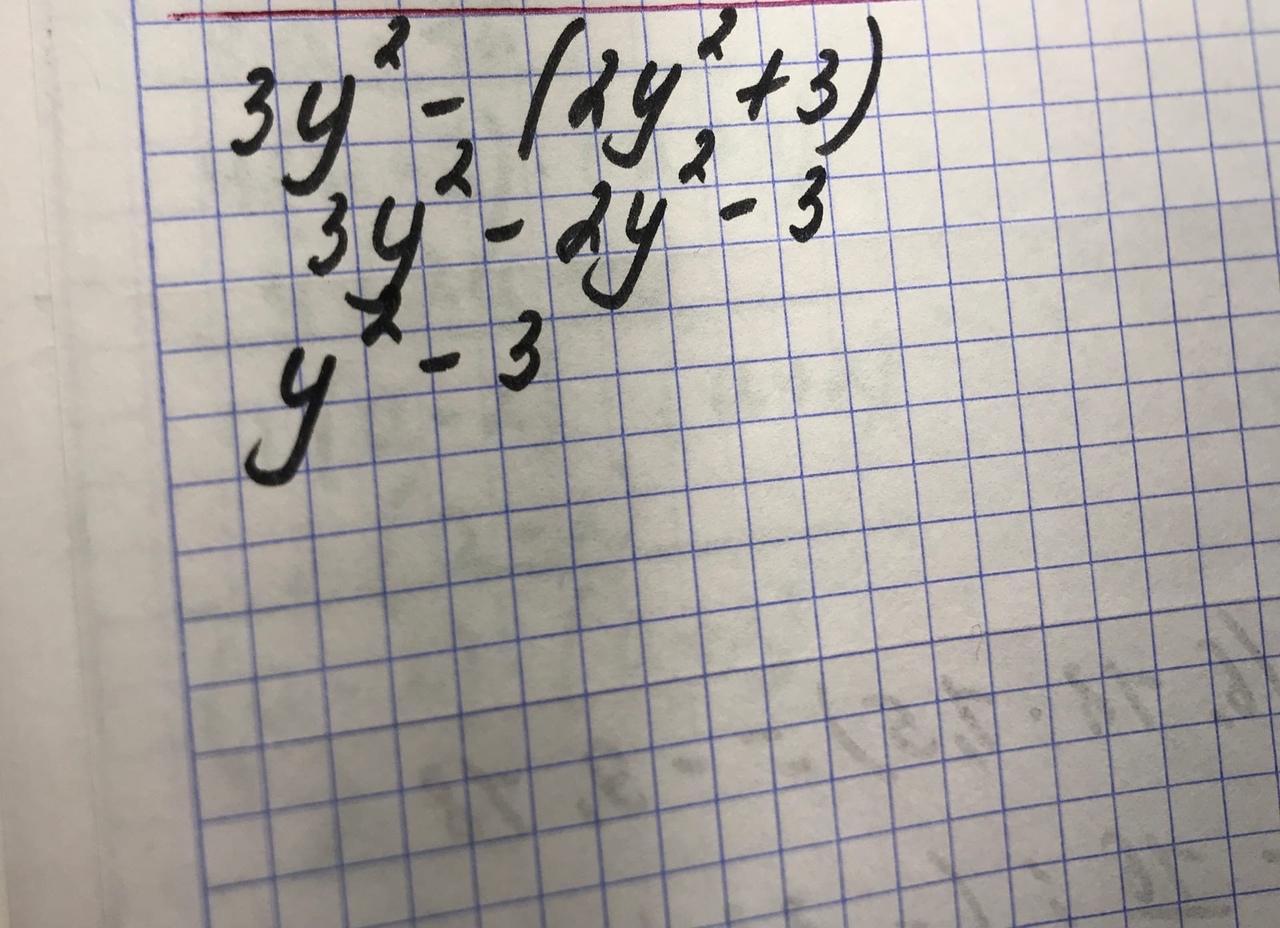 3y² - (2y² + 3)
3y² - 2y² - 3
y² - 3